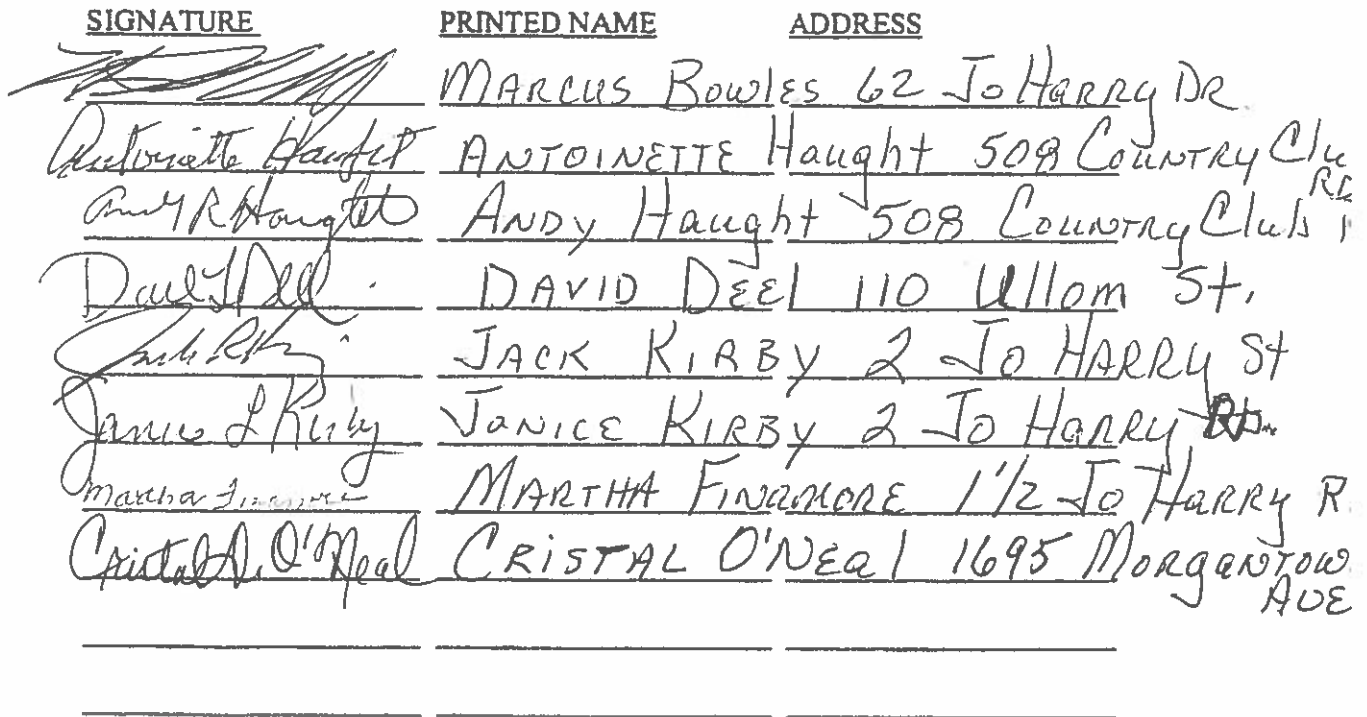 SIGNATURE PRINTED NAME ADDRESS
MARCUS BOWLES 62 JO HARRY DR
Antoinette Haught ANTOINETTE Haught 508 COUNTRY Clu
RD
Andy R Haught ANDY Haught 508 COUNTRY Club
David DAVID DEEl 110 Ullom St.
Jack R JACK KIRBY 2 JO HARRY St
Janice L Kirby JANICE KIRBY 2 JO HARRY RD
Martha MARTHA FINAMORE 1 1/2 JO HARRY R
Cristal O'Neal CRISTAL O'NEal 1695 MORGANTOW
AVE